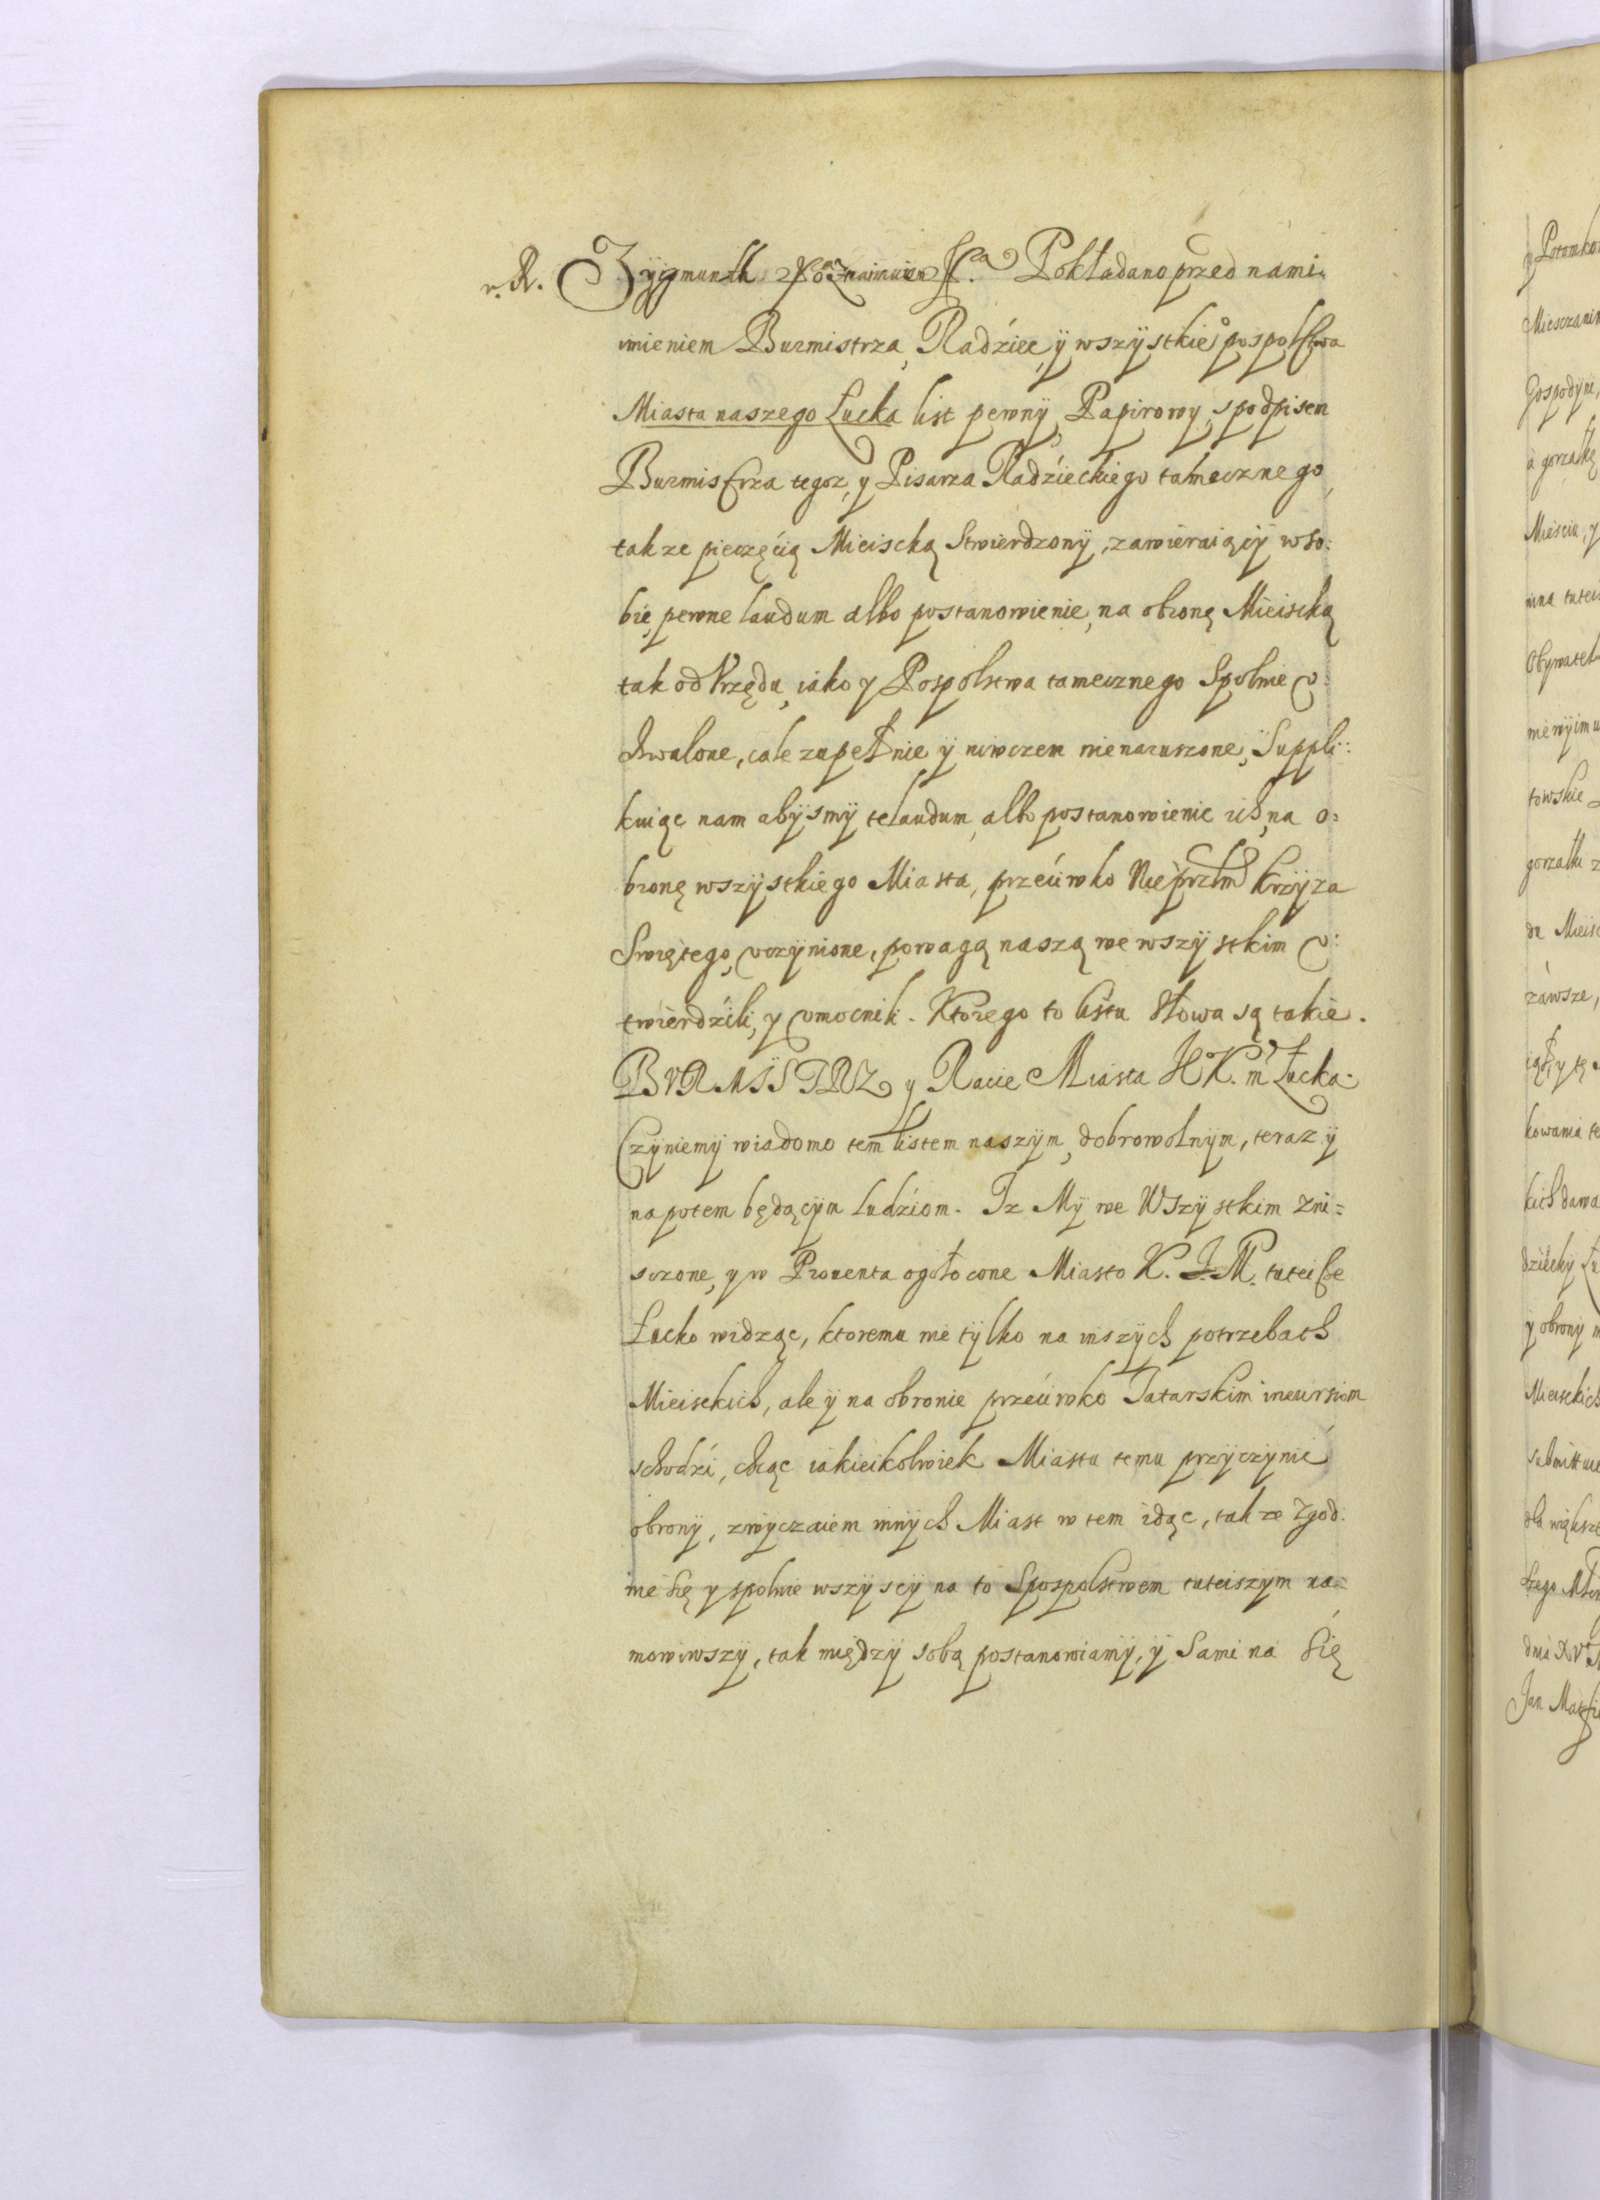 r. R. Zygmunth Oznaimuiem Pokładano przed nami
imieniem Burmistrza, Radziec, y wszystkieº pospolstwa
Miasta naszego Łucka list pewny, Papirowy, spodpisem
Burmistrza tegoz, y Pisarza Radzieckiego tamecznego,
takze pieczęcią Mieiscką Stwierdzony, zawieraiący wso:
bie, pewne laudum albo postanowienie, na obronę Mieiscką
tak od Vrzędu, iako y Pospolstwa tamecznego Spolnie v:
chwalone, cale zupełnie y niwczem nienaruszone, Suppli:
kuiąc nam abysmy te laudum, albo postanowienie ich, na o:
bronę wszystkiego Miasta, przeciwko Krzyza
Swiętego, vczynione, powagą naszą we wszystkim v:
twierdzili, y vmocnili. Ktorego to listu słowa są takie.
BVRMISTRZ y Racie Miasta K. m Łucka.
Czyniemy wiadomo tem listem naszym, dobrowolnym, teraz y
napotem będącym ludziom. Iz My we Wszystkim zni:
sczone, y w Prouenta ogołocone Miasto K. J. M. tuteisze
Łucko widząc, ktoremu nie tylko na inszych potrzebach
Mieisckich, ale y na obronie przeciwko Tatarskim incursiom
schodzi, chcąc iakieikolwiek Miastu temu przyczynić
obrony, zwyczaiem innych Miast w tem idąc, takze zgod:
nie się y spolnie wszyscy na to Spospolstwem tuteiszym na:
mowiwszy, tak między sobą postanowiamy, y Sami na Się